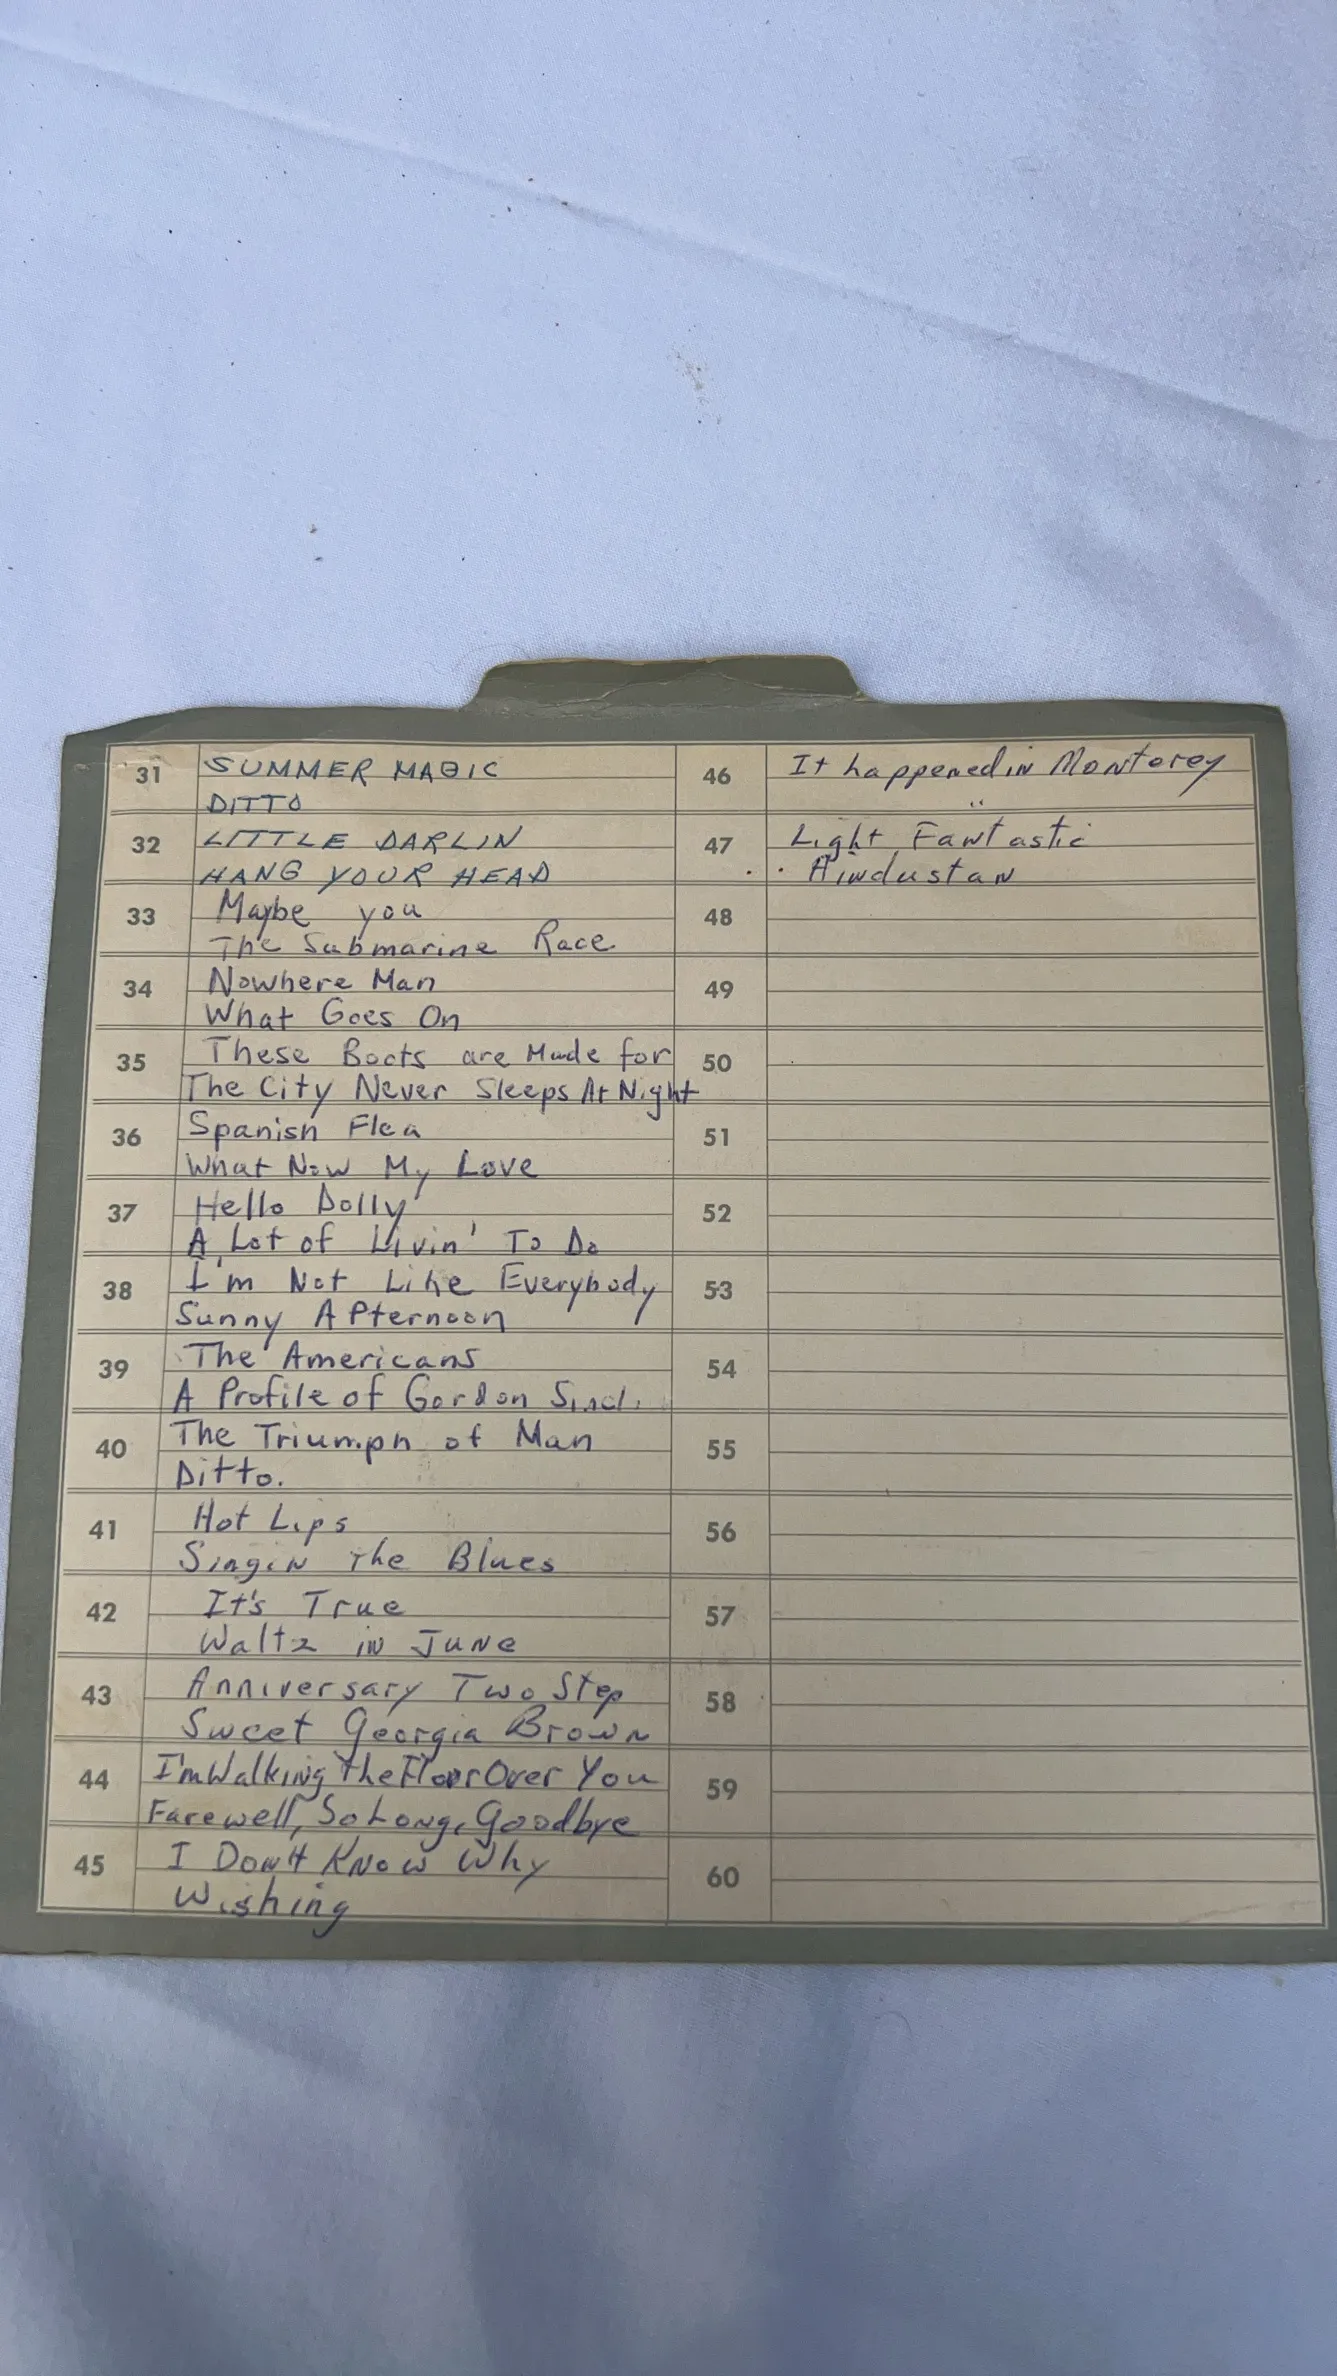 31 SUMMER MAGIC
DITTO
32 LITTLE DARLIN
HANG YOUR HEAD
33 Maybe you
The Submarine Race
34 Nowhere Man
What Goes On
35 These Boots are Made for
The City Never Sleeps At Night
36 Spanish Flea
What Now My Love
37 Hello Dolly
A Lot of Livin' To Do
38 I'm Not Like Everybody
Sunny Afternoon
39 The Americans
A Profile of Gordon Sincl.
40 The Triumph of Man
Ditto.
41 Hot Lips
Singin The Blues
42 It's True
Waltz in June
43 Anniversary Two Step
Sweet Georgia Brown
44 I'm Walking The Floor Over You
Farewell, So Long, Goodbye
45 I Don't Know Why
Wishing
46 It happened in Monterey
"
47 Light Fantastic
Hindustan
48
49
50
51
52
53
54
55
56
57
58
59
60